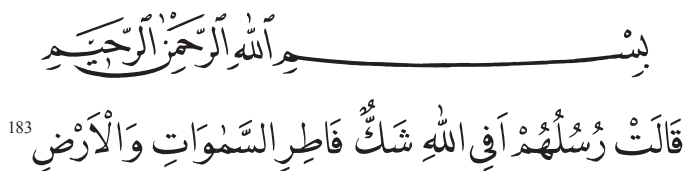 بِسْمِ اللّٰهِ الرَّحْمٰنِ الرَّحِيمِ
قَالَتْ رُسُلُهُمْ اَفِى اللّٰهِ شَكٌّ فَاطِرِ السَّمٰوَاتِ وَالْاَرْضِ 183